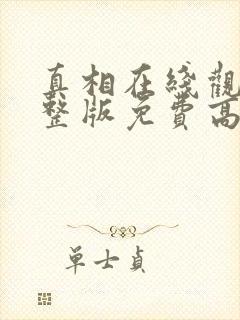 真相在线觀
整版免費高
單士貞